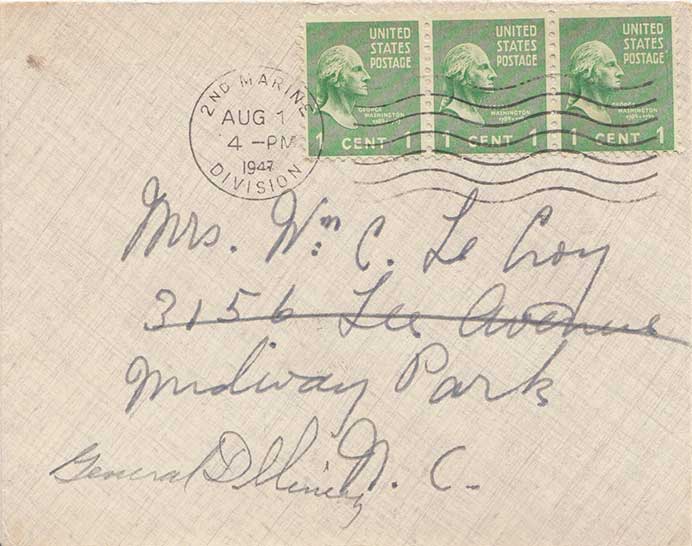 UNITED STATES POSTAGE
GEORGE WASHINGTON
1 CENT 1
UNITED STATES POSTAGE
GEORGE WASHINGTON
1 CENT 1
UNITED STATES POSTAGE
GEORGE WASHINGTON
1 CENT 1
2ND MARINE
AUG 1
4 -PM
1947
DIVISION
Mrs. Wm. C. Le Croy
3156 Lee Avenue
Midway Park
General Delivery N. C.